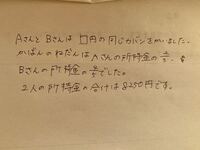 AさんとBさんは □円の同じカバンをかいました。
かばんのねだんは Aさんの所持金の
Bさんの所持金の でした。
2人の所持金の合計は8250円です。